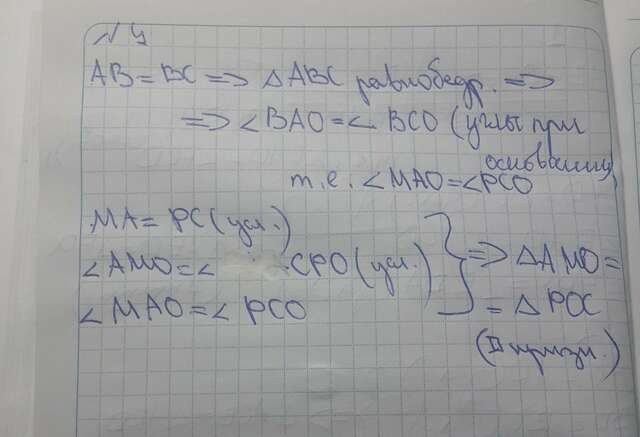 N 4
AB = BC => △ABC равнобедр. =>
=> ∠BAO = ∠BCO (углы при
основании)
т.е. ∠MAO = ∠PCO
MA = PC (усл.)
∠AMO = ∠ CPO (усл.)
∠MAO = ∠PCO
=> △AMO =
= △POC
(II призн.)